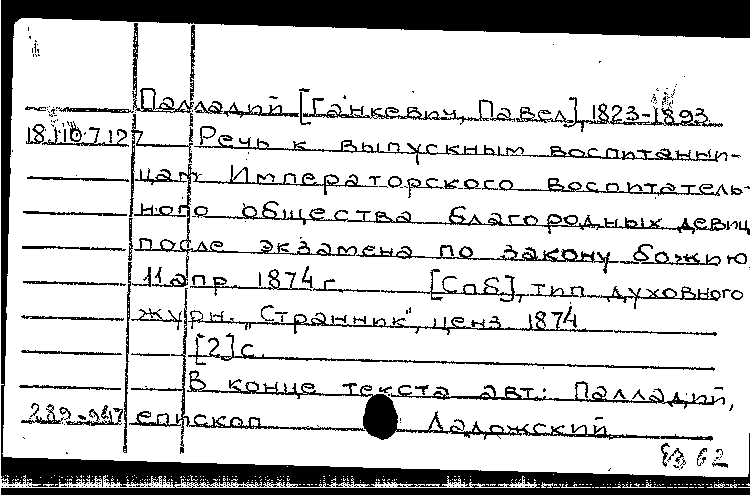 Палладий [Ганкевич, Павел], 1823-1893
18.110.7.127 Речь к выпускным воспитанни-
цам Императорского воспитатель-
ного общества благородных девиц
после экзамена по закону божию
11 апр. 1874 г. [Спб], тип. духовного
журн. „Странник", ценз. 1874
[2] с.
В конце текста авт.: Палладий,
289-947 епископ Ладожский.